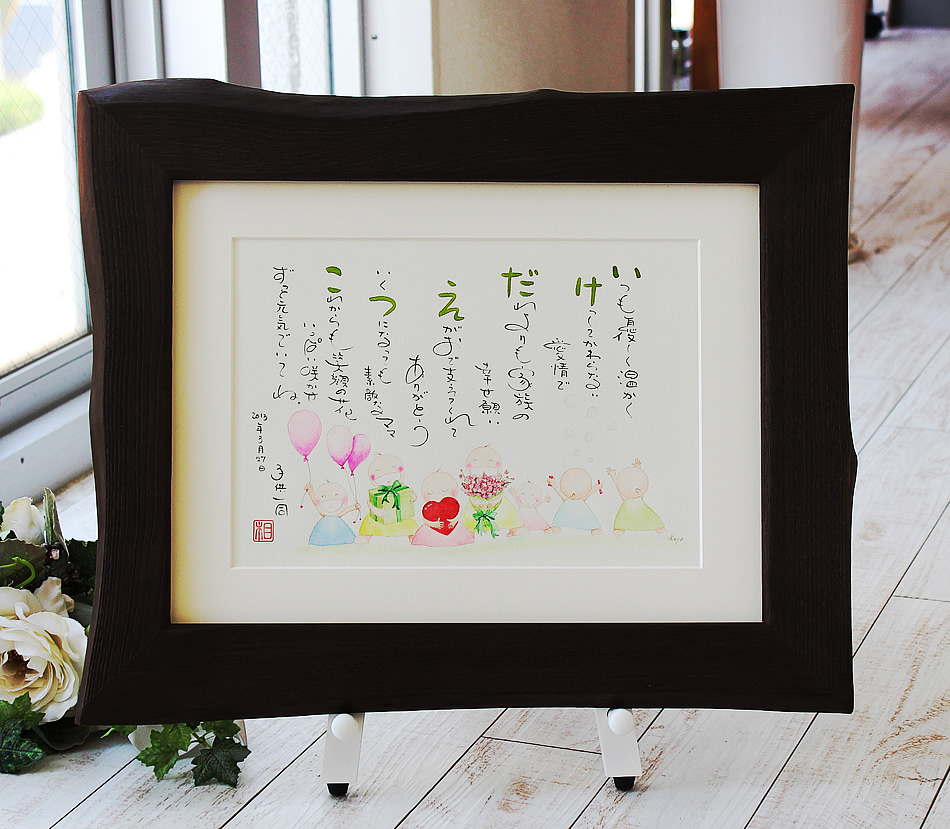 いつも優しく温かく
けっしてかわらない
愛情で
だれよりも家族の
幸せ願い
えがおで支えてくれて
ありがとう
いくつになっても
素敵なママ
これからも笑顔の花
いっぱい咲かせ
ずっと元気でいてね。
2013年3月27日
子供一同
相